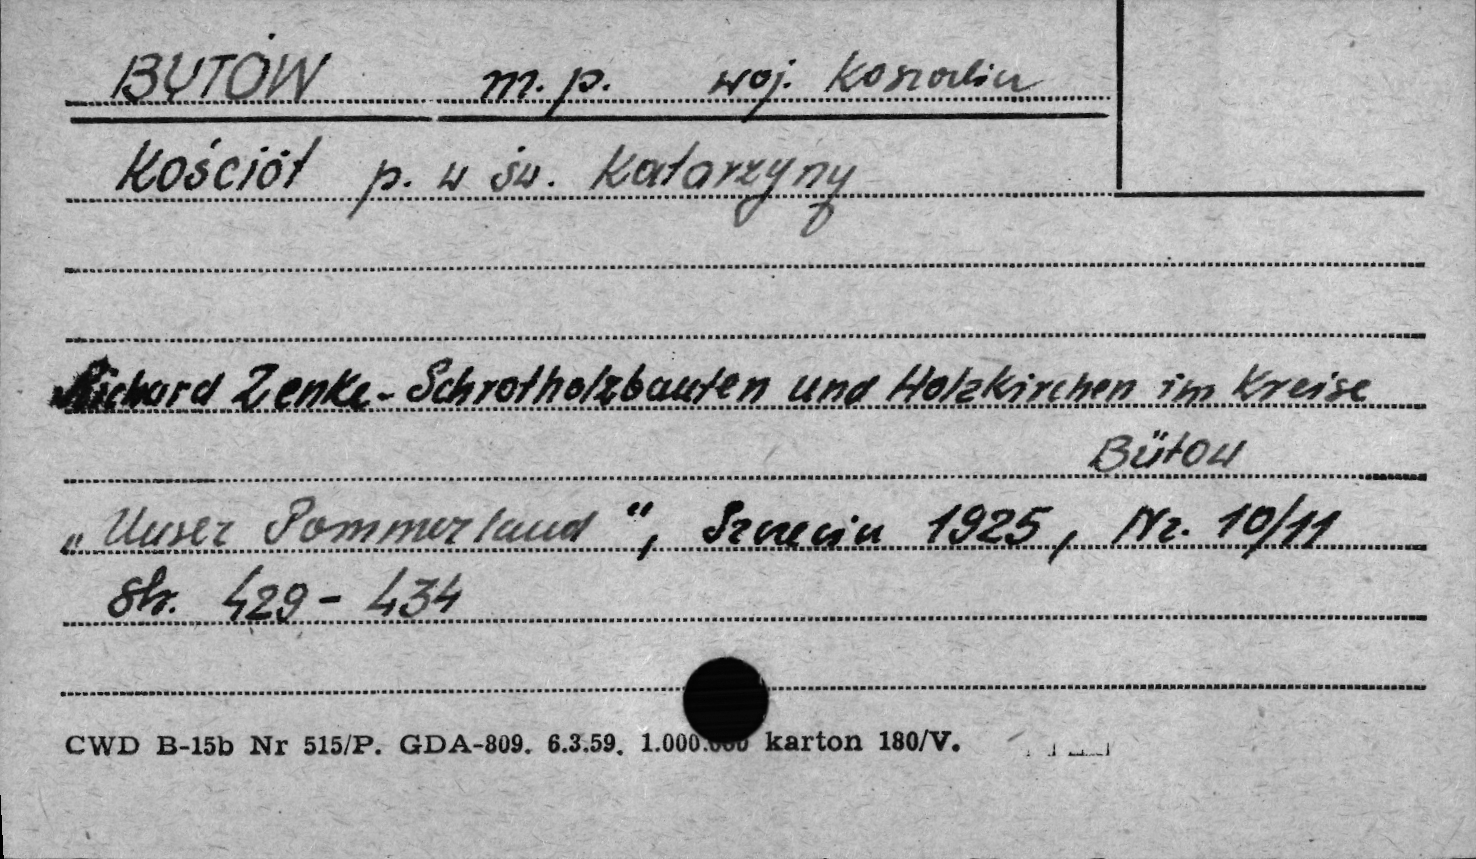 BYTÓW m. p. woj. Koszalin
Kościół p. w św. Katarzyny
Richard Zenke - Schrotholzbauten und Holzkirchen im Kreise
Bütow
„Unser Pommerland", Szczecin 1925, Nr. 10/11
Str. 429 - 434
CWD B-15b Nr 515/P. GDA-809. 6.3.59. 1.000.000 karton 180/V.